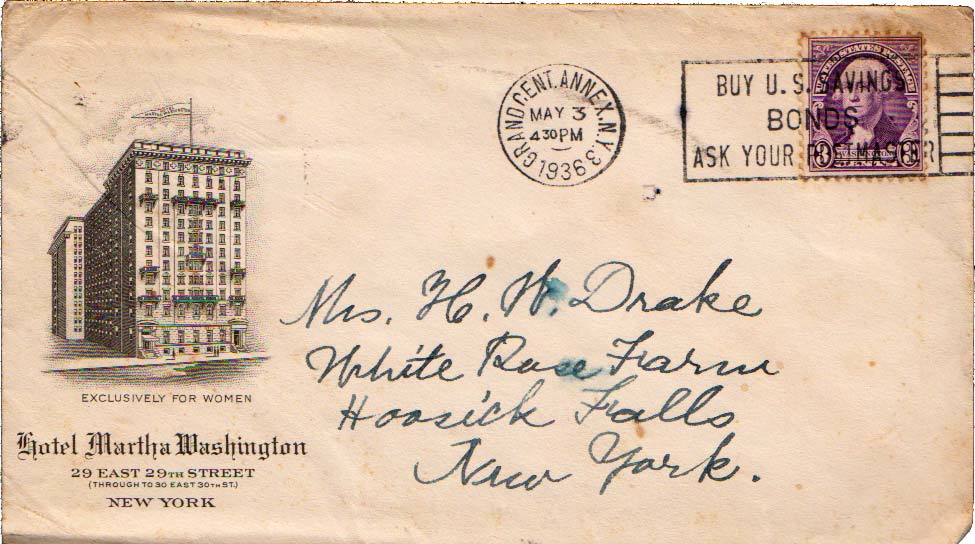 GRAND CENT. ANNEX. N.Y. 3
MAY 3
4 30 PM
1936
BUY U.S. SAVINGS
BONDS
ASK YOUR POSTMASTER
UNITED STATES POSTAGE
3 WASHINGTON 3
MARTHA WASHINGTON
EXCLUSIVELY FOR WOMEN
Hotel Martha Washington
29 EAST 29TH STREET
(THROUGH TO 30 EAST 30TH ST.)
NEW YORK
Mrs. H. W. Drake
White Rose Farm
Hoosick Falls
New York.